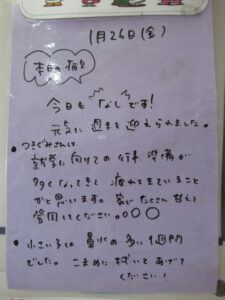 1月26日(金)
本日の病欠
今日も"なし"です!
元気に週末を迎えられました。
・つきぐみさんは、
就学に向けての行事、準備が
多くなってきて疲れてきていること
かと思います。家でたくさん甘えて
登園してください。○○
・小さい子は鼻水の多い1週間
でした。こまめに拭いてあげて
ください!